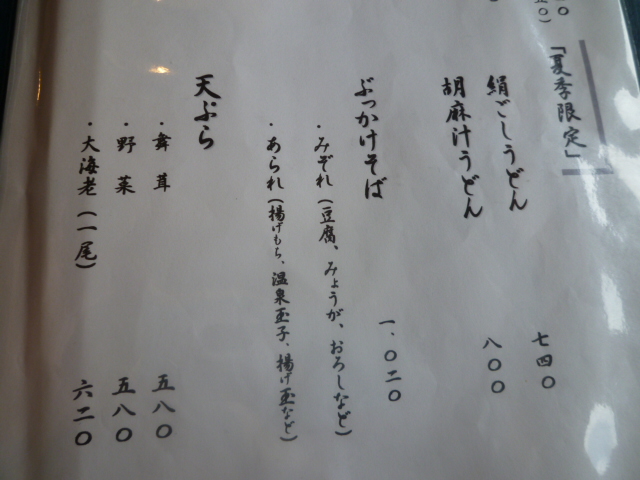 「夏季限定」
絹ごしうどん 七四〇
胡麻汁うどん 八〇〇
ぶっかけそば 一、〇二〇
・みぞれ（豆腐、みょうが、おろしなど）
・あられ（揚げもち、温泉玉子、揚げ玉など）
天ぷら
・舞茸 五八〇
・野菜 五八〇
・大海老（一尾） 六二〇